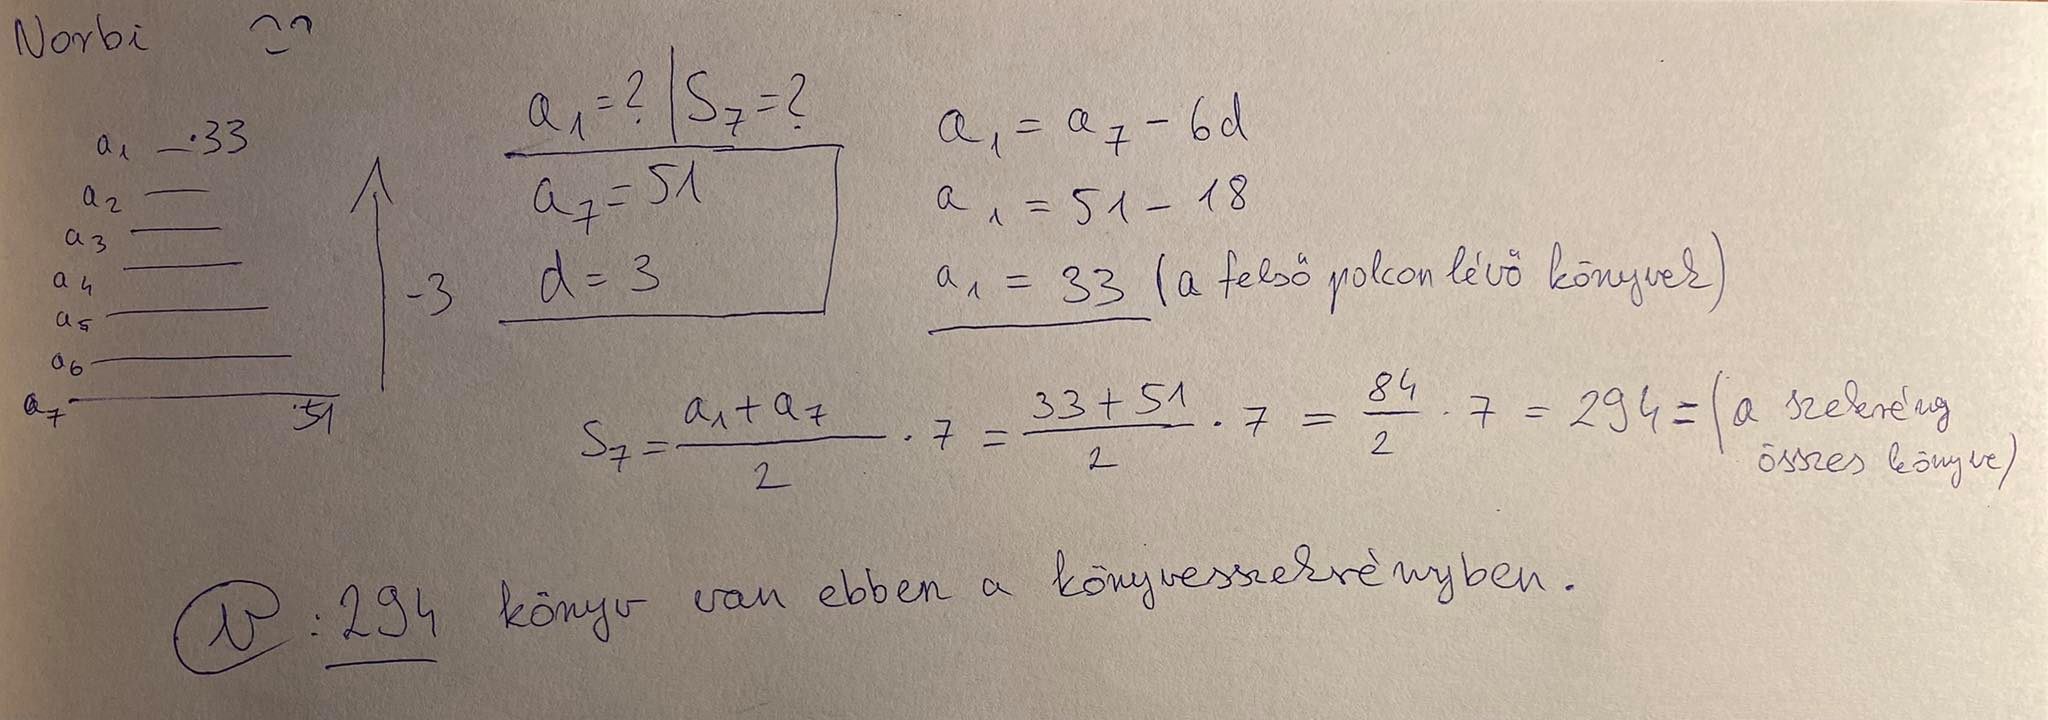 Norbi
a₁ 33
a₂
a₃
a₄
a₅
a₆
a₇ 51
-3
a₁ = ? | S₇ = ?
a₇ = 51
d = 3
a₁ = a₇ - 6d
a₁ = 51 - 18
a₁ = 33 (a felső polcon lévő könyvek)
S₇ = (a₁ + a₇)/2 · 7 = (33 + 51)/2 · 7 = 84/2 · 7 = 294 = (a szekrény
összes könyve)
V: 294 könyv van ebben a könyvesszekrényben.